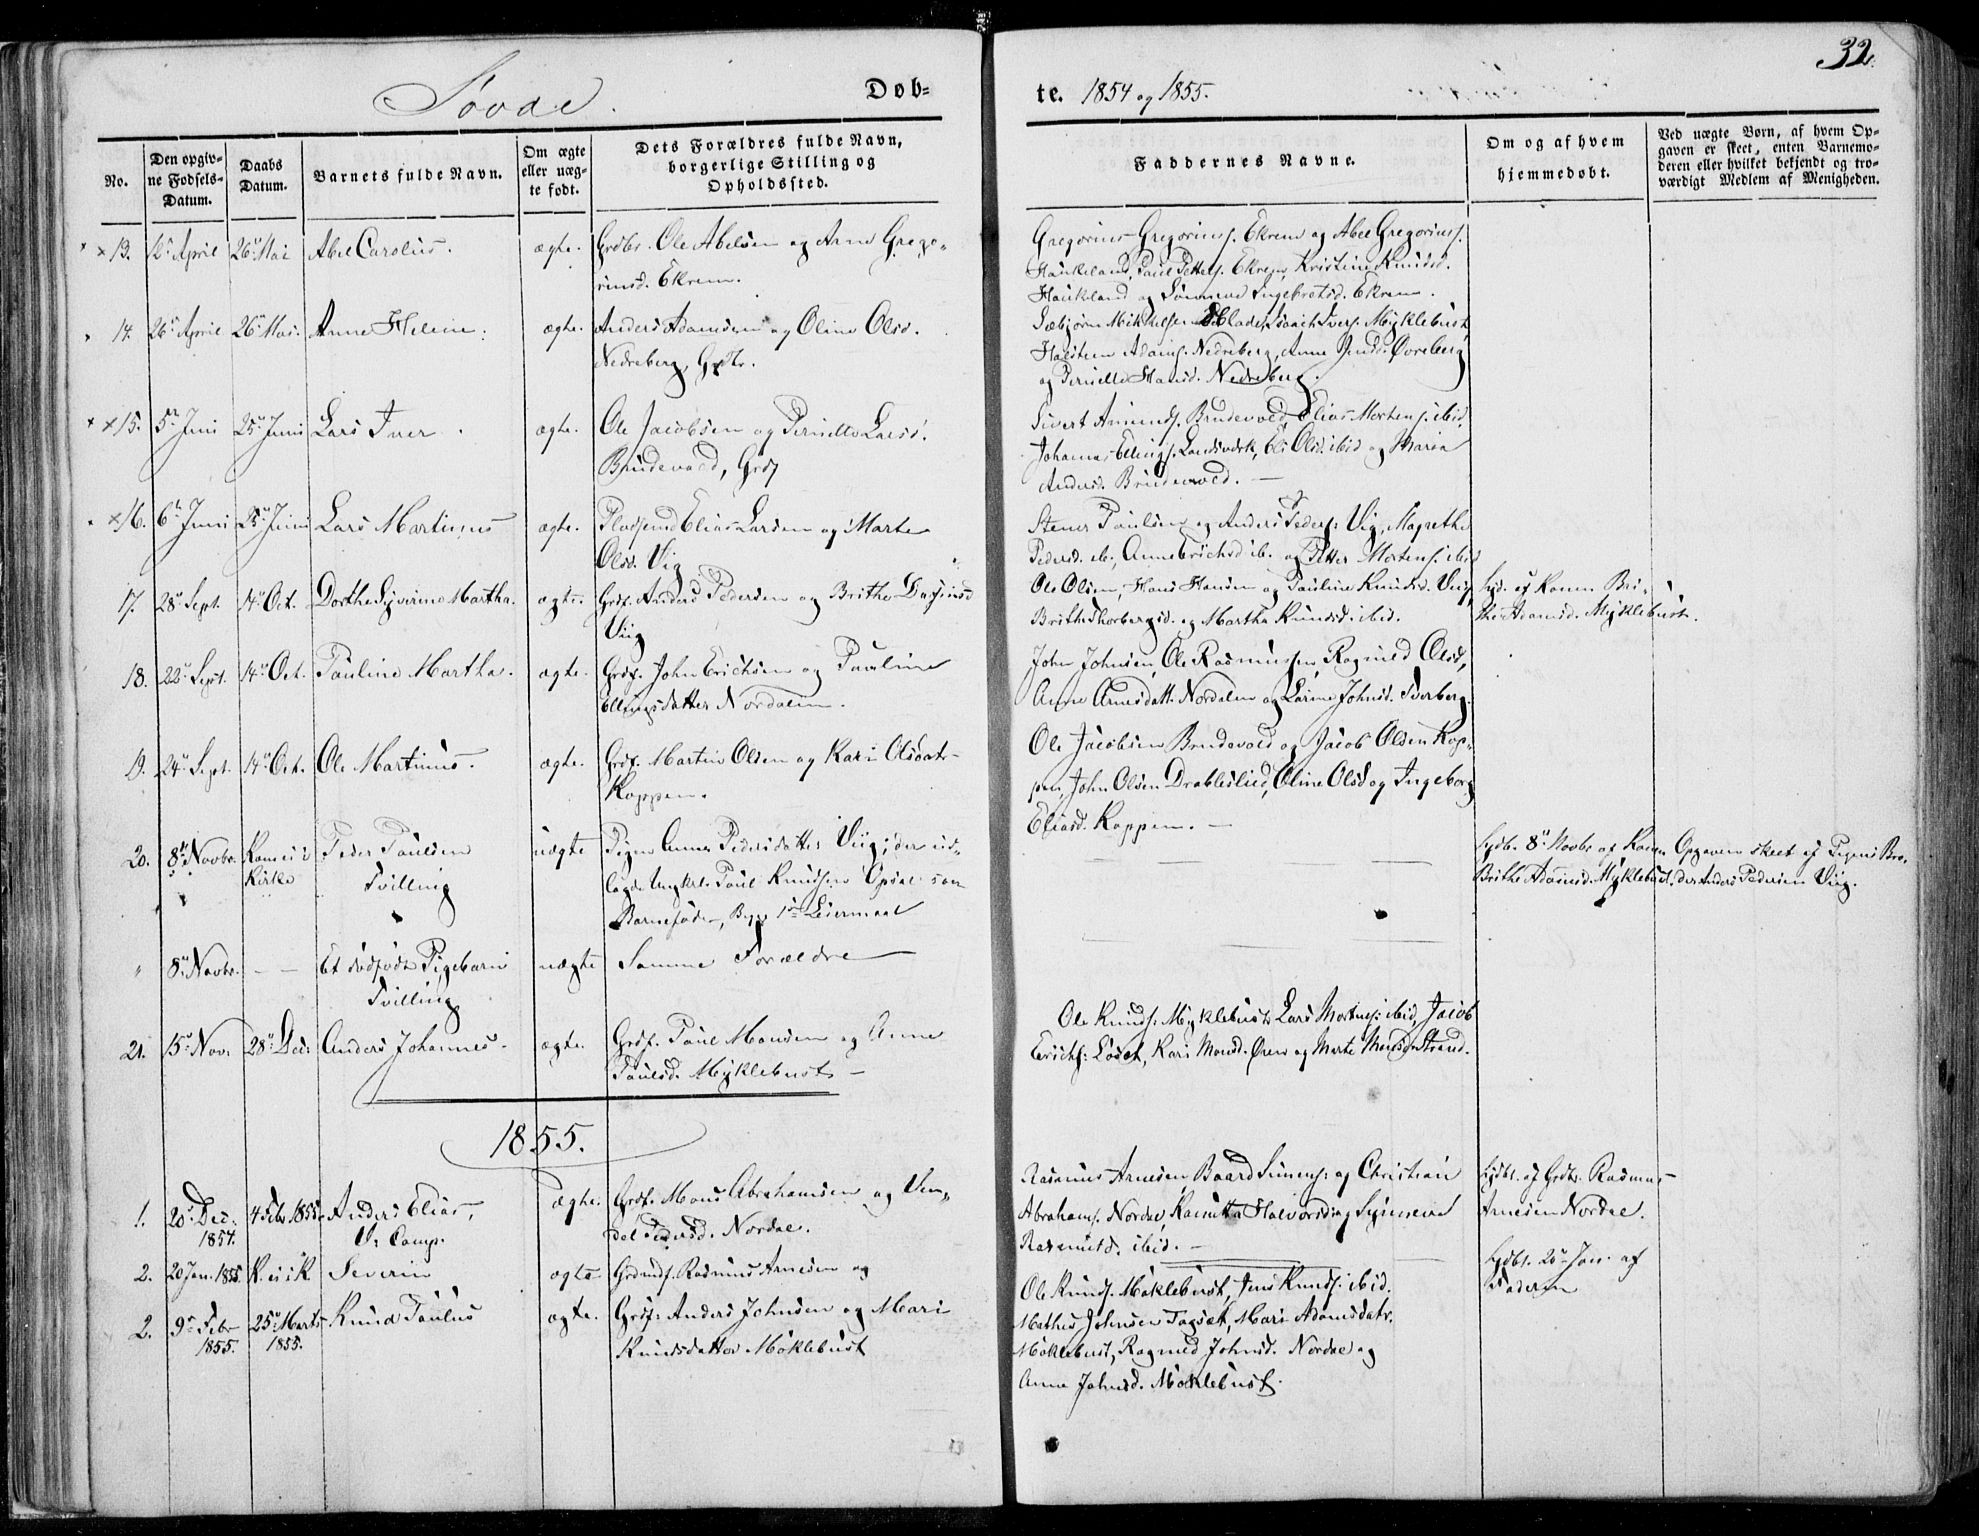 32.
Søvde.
Døb-
te. 1854 og 1855.
No.
Den opgiv-
ne Fødsels-
Datum.
Daabs
Datum.
Barnets fulde Navn.
Om ægte
eller uæg-
te født.
Dets Forældres fulde Navn,
borgerlige Stilling og
Opholdssted.
Faddernes Navne.
Om og af hvem
hjemmedøbt.
Ved uægte Børn, af hvem Op-
gaven er skeet, enten Barnemo-
deren eller hvilket bekjendt og tro-
værdigt Medlem af Menigheden.
× ×13. 12 April 26 Mai Abel Carolus. ægte. Grdbr. Ole Abelsen og Ane Grego-
rinsd. Ekrem.
Gregorius Gregoriusf. Ekrem og Abel Gregoriusf.
Haukeland, Paul Petterf. Ekrem, Kristine Knudsd.
Haukland og Ingebretsd. Ekrem.
14. 26 April 26 Mai. Anne Heline. ægte. Anders Adamsen og Oline Olsd.
Nedreberg, Grdbr.
Sæbjørn Mikkelsen Iversf. Myklebust,
Adamsf. Nedreberg, Anne Jensd. Øvreberg
og Pernelle Hansd. Nedreberg.
× ×15. 5 Juni 25 Juni Lars Iver. ægte. Ole Jacobsen og Pernelle Larsd.
Brudevold, Grdf
Sivert Brudevold, Elias Mortensf. ibid.
Johannes Ellingsf. Landsverk, Eli Olsd. ibid og Maria
Andersd. Brudevold. —
×16. 6 Juni 25 Juni Lars Martinus ægte. Pladsmd Elias Larsen og Marte
Olsd. Vig
Paulsen og Anders Pedersf. Vig, Magrethe
Pedersd. ib., Anne Erichsd ib. og Petter Mortensf. ibid
17. 28 Sept. 14 Oct. Dorthe Syverine Martha. ægte. Grdf. Anders Pedersen og Brithe
Viig
Ole Olsen, Hans Hansen og Pauline Knudsd. Viig,
Brithe Thorbergsd. og Martha Knudsd. ibid.
af Konen Bri-
the Adamsd. Myklebust.
18. 22 Sept. 14 Oct. Pauline Martha. ægte. Grdf. John Erichsen og Pauline
Ellingsdatter Nordalen.
John Johnsen, Ole Rasmussen, Ragnild Olsd,
Anne Arnesdatt. Nordalen og Larine Johnsd. Sverberg.
19. 24 Sept. 14 Oct. Ole Martinus. ægte. Grdf. Martin Olsen og Kari Olsdatr
Koppen.
Ole Jacobsen Brudevold og Jacob Olsen Kop-
pen, John Olsen Drableslied, Oline Olsd og Ingeborg
Eliasd. Koppen. —
20. 8 Novbr. Kom ei i
Kirke
Peder Paulsen
Tvilling
uægte Pigen Anne Pedersdatter Viig; der ud-
lagde Ungkrl. Paul Knudsen Opdal som
Barnefader, Begges 1ste Leiermaal
Hjdb. 8 Novbr af Konen
Brithe Adamsd. Myklebust.
Opgaven skeet af Pigens Bro-
der Anders Pedersen Viig.
" 8 Novbr. — — Et dødfødt Pigebarn
Tvilling
uægte Samme Forældre
21. 15 Nov. 28 Dec. Anders Johannes. ægte. Grdf. Paul Monsen og Anne
Paulsd. Myklebust —
Ole Knudsf. Myklebust, Lars Mortensf. ibid, Jacob
Erichsf. Løset, Kari Monsd. Ørem og Marte Monsd. Strand.
1855.
1. 20 Dec.
1854.
4 Febr. 1855. Anders Elias,
V: Comp.
ægte. Grdf. Mons Abrahamsen og Ven-
del Pedersd. Nordal.
Rasmus Arnesen, Baard Simensf. og Christian
Abrahamsf. Nordal, Halvorsd og
Rasmusd. ibid. —
Hjdbt. af Grdbr. Rasmus
Arnesen Nordal.
2. 20 Jan. 1855. K. ei i K. Severin ægte Grdmdf. Rasmus Arnesen og
Hjdbt. 20 Jan. af
Faderen
2. 9 Febr
1855.
25 Marts
1855.
Knud Paulus ægte. Grdf. Anders Johnsen og Mari
Knudsdatter Møklebust
Ole Knudsf. Møklebust, Jens Knudsf. ibid.
Mathis Johnsen Tagsæt, Mari Adamsdatr.
Møklebust, Ragnild Johnsd. Nordal og
Anne Johnsd. Møklebust.